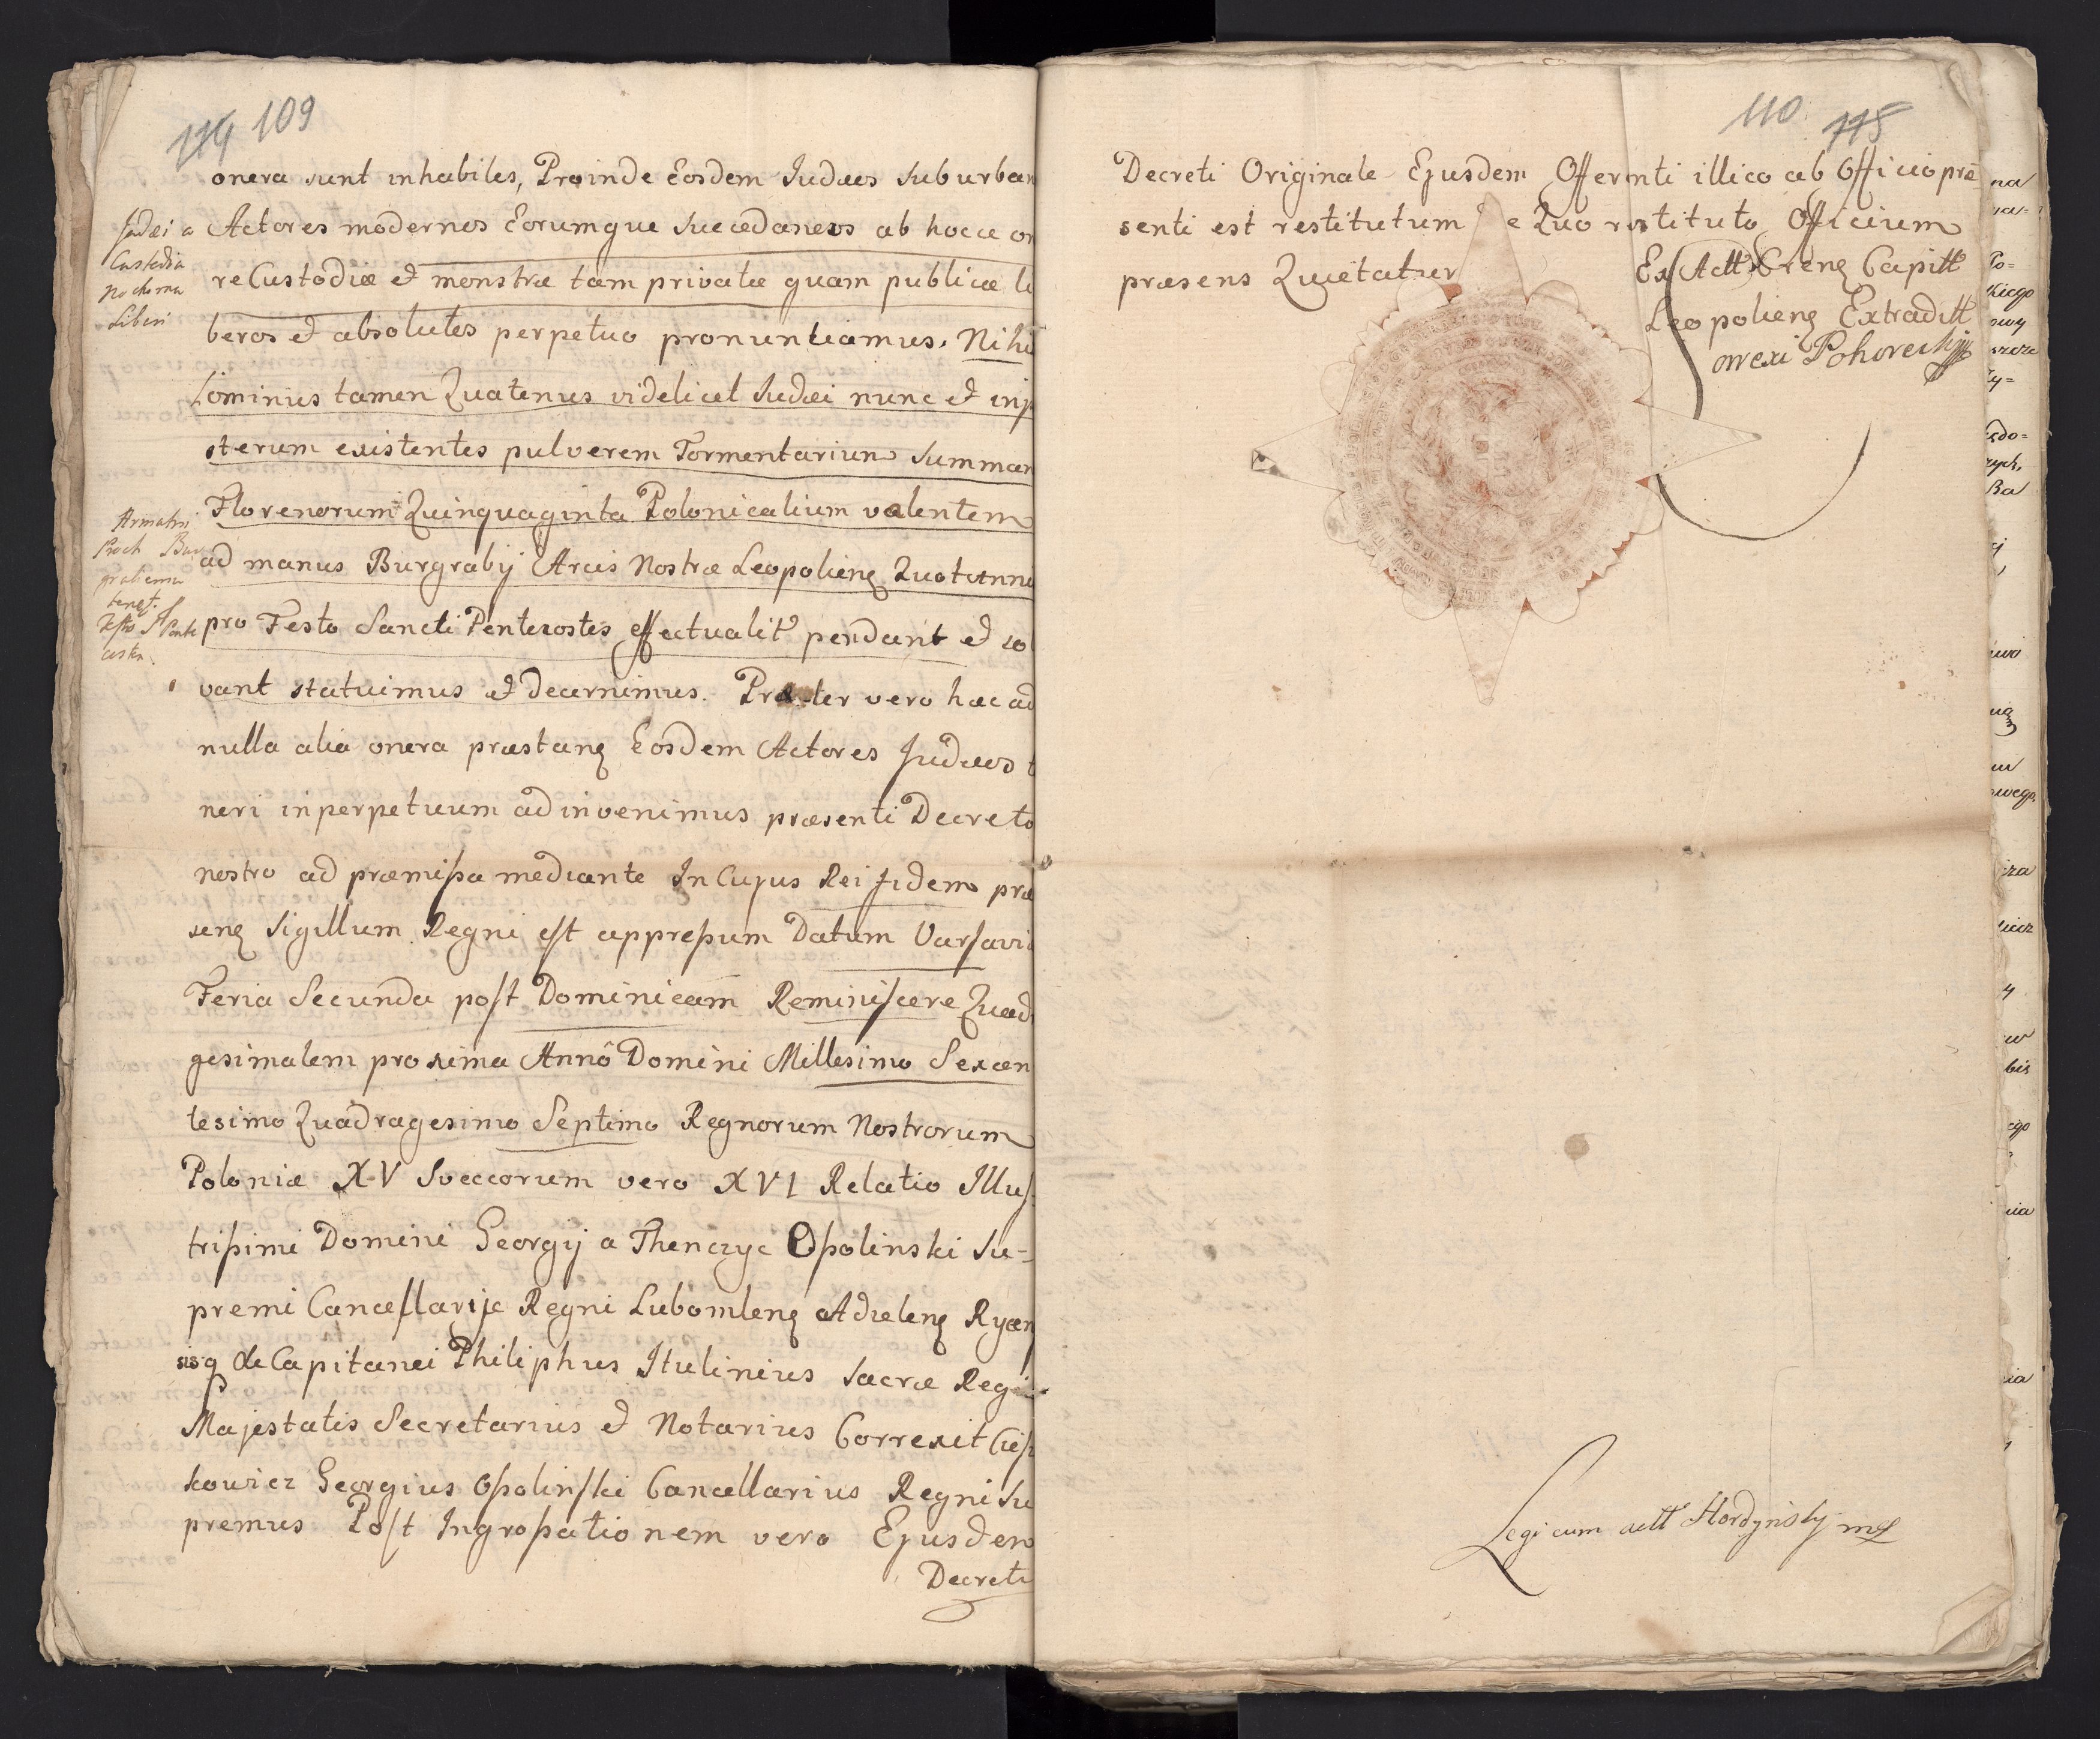 114 109
onera sunt inhabiles, Proinde Eosdem Judæos suburban
Judæi a
Custodia
nocturna
Liberi
Actores modernos Eorumque succedaneos ab hocce on
re Custodiæ et monstræ tam privatæ quam publicæ li
beros et absolutos perpetuo pronuntiamus. Nihi
lominius tamen Quatenus videlicet Judæi nunc et inp
sterum existentes pulverem Tormentarium summam
Florenorum Quinquaginta Polonicalium valentem
ad manus Burgrabij Arcis Nostræ Leopolieng Quotanni
pro Festo Sancti Pentecostes effectualit pendant et sol
vant statuimus et decernimus. Præter vero hæc ad
nulla alia onera præstang Eosdem Actores Judæos t
neri in perpetuum adinvenimus præsenti Decreto
nostro ad præmissa mediante In Cujus Rei fidem præ
seng Sigillum Regni est appressum Datum Varsavi
Feria Secunda post Dominicam Reminiscere Quad
gesimalem proxima Annô Domini Millesimo Sexcen
tesimo Quadragesimo Septimo Regnorum Nostrorum
Poloniæ XV Sveccorum vero XVI Relatio Illus
trissimi Domini Georgij a Thenczyc Ossolinski Su-
premi Cancellarije Regni Lubomleng Adzeleng Rycen
sisq de Capitanei Philiphus Itulinius Sacræ Regi
Majestatis Secretarius et Notarius Correxit Cies
kowicz Georgius Ossolinski Cancellarius Regni Su
premus Post Ingrossationem vero Ejusdem
Decreti
110 115
Decreti Originale Ejusdem Offerenti illico ab Officio præ
senti est restitutum de Quo restituto Officium
præsens Quietatur
Ex Actt Creng Capitt
Leopolieng Extraditt
orrexi Pohoreckj
Legi cum actt Hordynsky mp